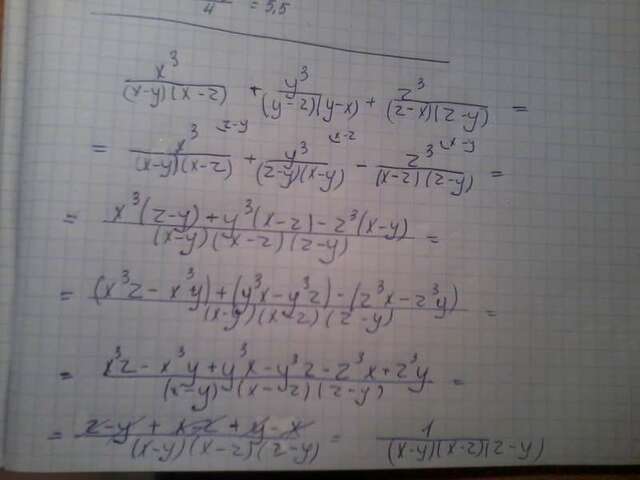 4 = 5,5
x³/((x-y)(x-z)) + y³/((y-z)(y-x)) + z³/((z-x)(z-y)) =
= x³ (z-y)/((x-y)(x-z)) + y³ (x-z)/((z-y)(x-y)) - z³ (x-y)/((x-z)(z-y)) =
= (x³(z-y) + y³(x-z) - z³(x-y))/((x-y)(x-z)(z-y)) =
= ((x³z - x³y) + (y³x - y³z) - (z³x - z³y))/((x-y)(x-z)(z-y)) =
= (x³z - x³y + y³x - y³z - z³x + z³y)/((x-y)(x-z)(z-y)) =
= (z-y + x-z + y-x)/((x-y)(x-z)(z-y)) = 1/((x-y)(x-z)(z-y))